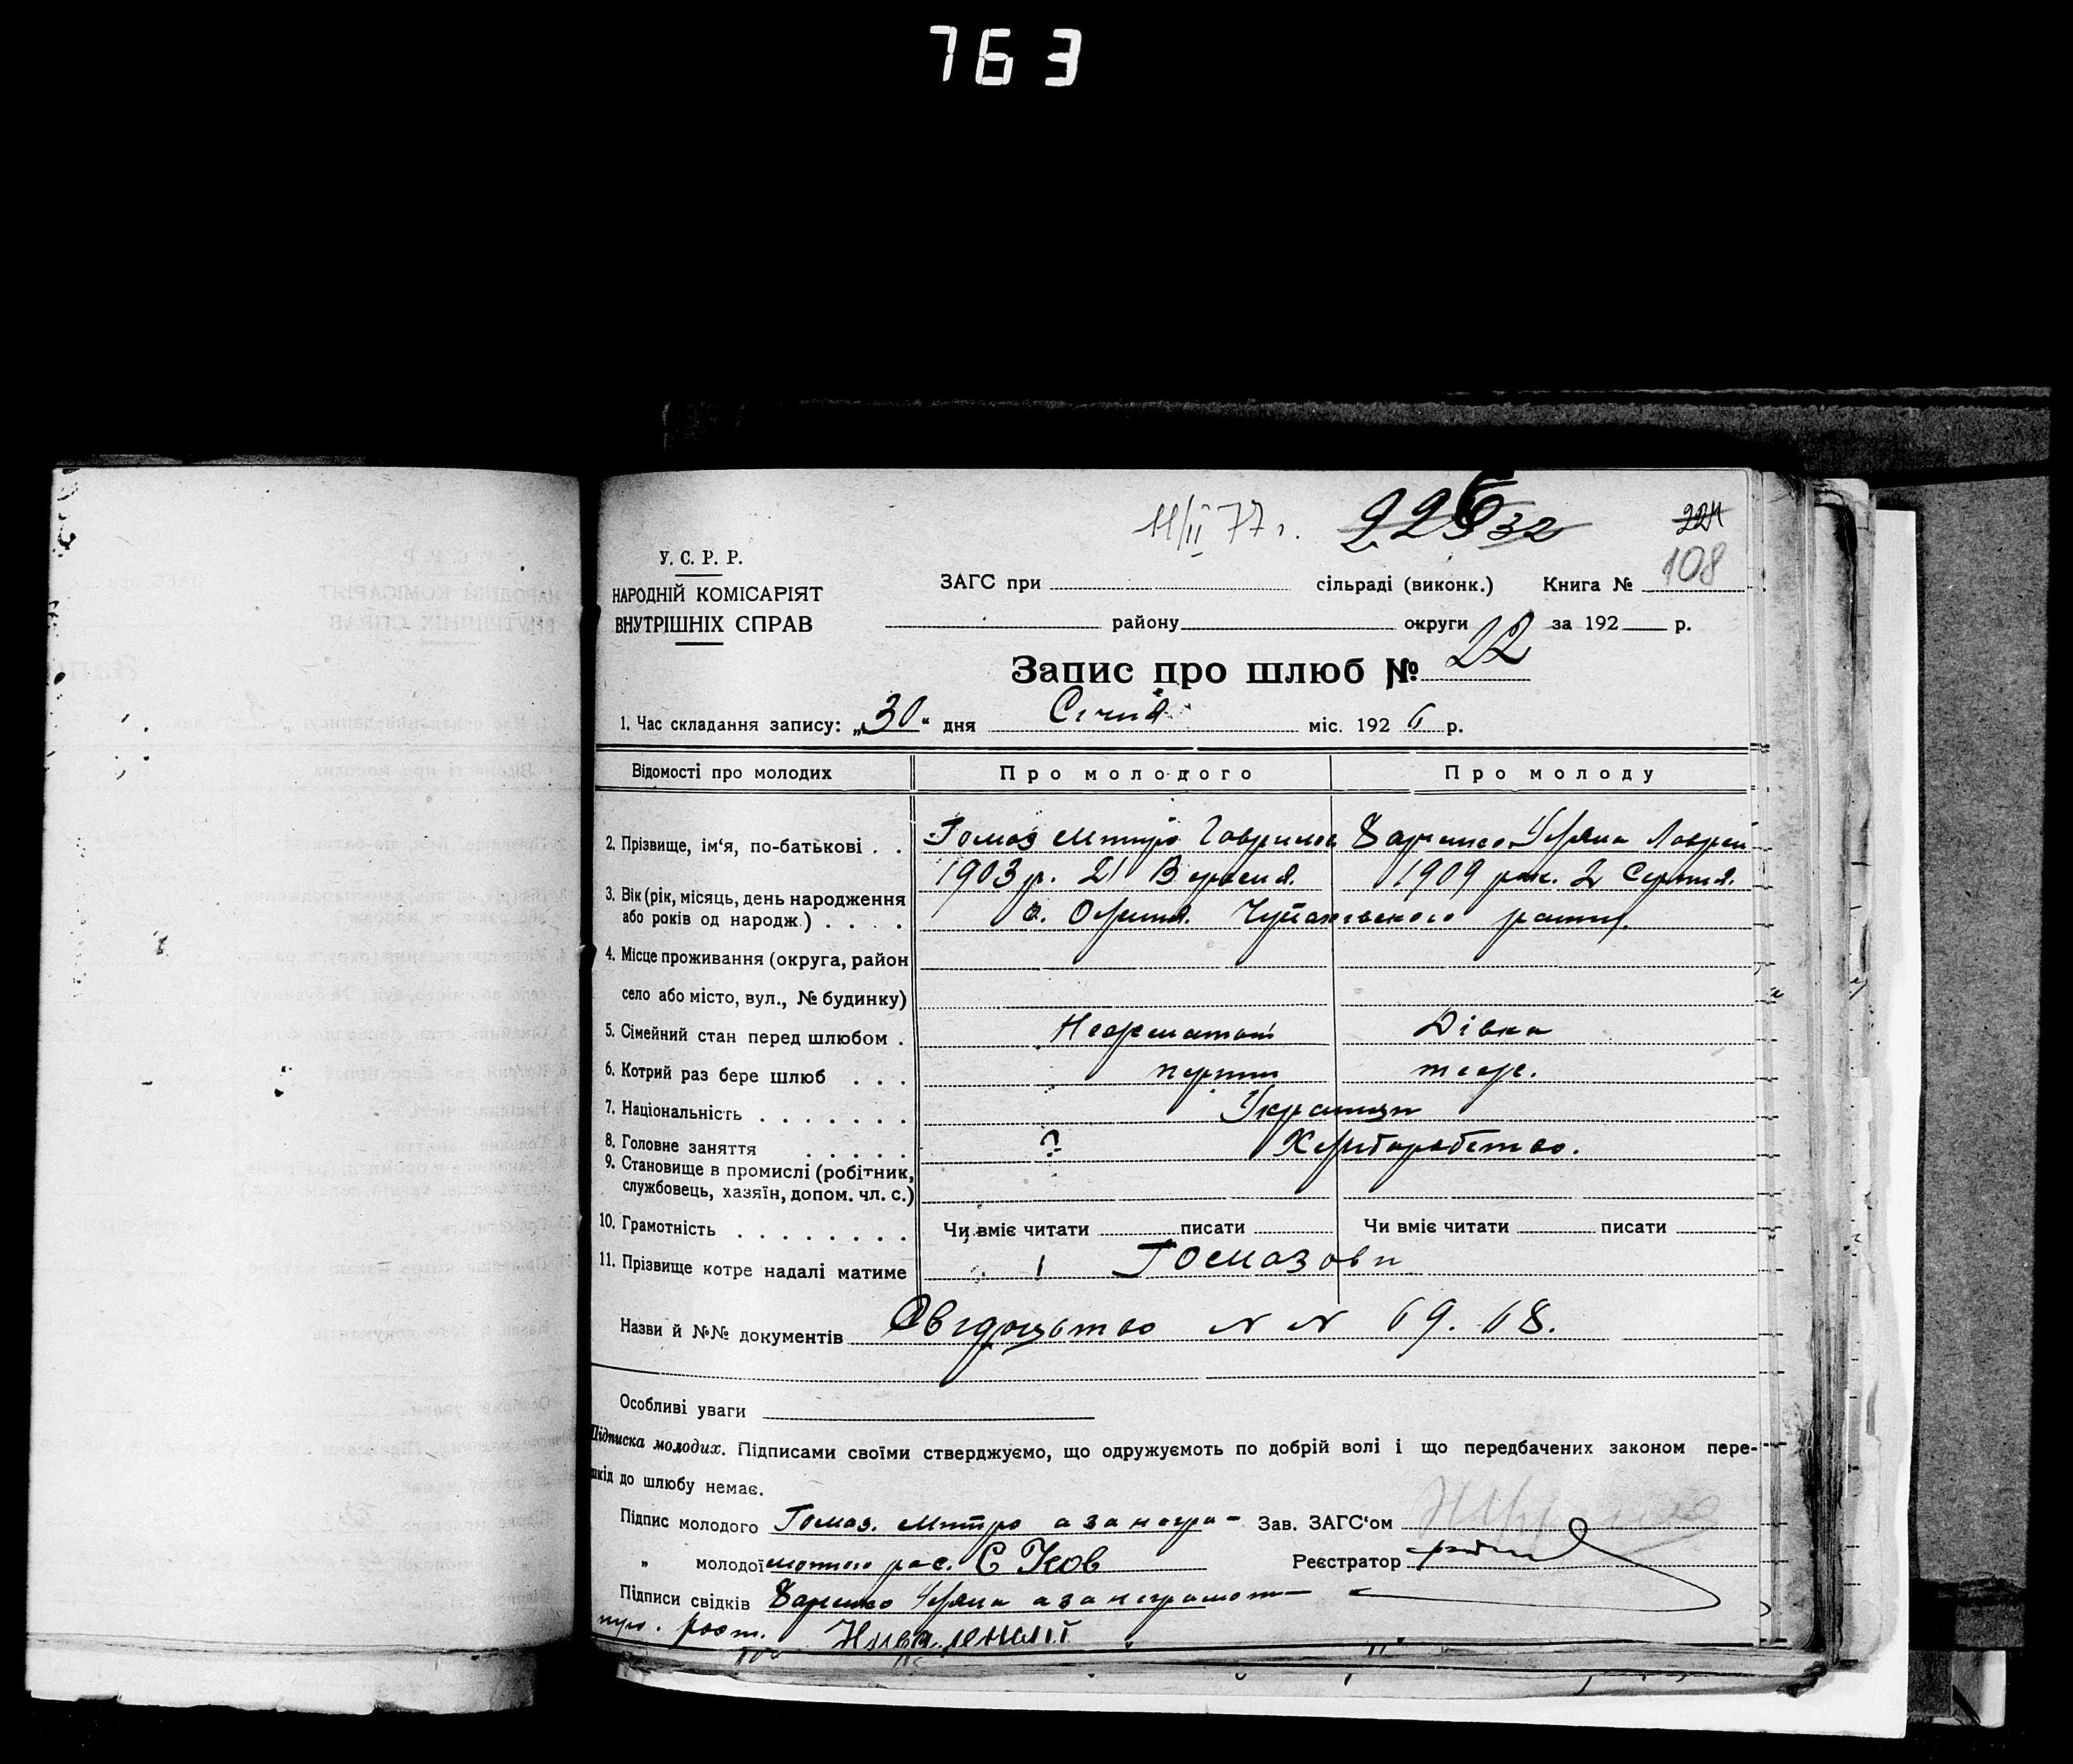 763
11/II 77 г. 226 32 224
У. С. Р. Р.
НАРОДНІЙ КОМІСАРІЯТ
ВНУТРІШНІХ СПРАВ
108
ЗАГС при сільраді (виконк.) Книга №
району округи за 192 р.
Запис про шлюб № 22
1. Час складання запису: „30“ дня Січня міс. 1926 р.
Відомості про молодих Про молодого Про молоду
2. Прізвище, ім‘я, по-батькові . . Гомоз Митро Гаврилов
3. Вік (рік, місяць, день народження 1903 р. 21 Вересня. 1909 рок. 2 Серпня.
або років од народж.) . . . .
4. Місце проживання (округа, район
село або місто, вул., № будинку)
5. Сімейний стан перед шлюбом . Нежонатой Дівка
6. Котрий раз бере шлюб . . . перший тоже.
7. Національність . . . . . . . Українци
8. Головне заняття . . . . . ? Хліборобство.
9. Становище в промислі (робітник,
службовець, хазяїн, допом. чл. с.)
10. Грамотність . . . . . . . . Чи вміє читати писати Чи вміє читати писати
11. Прізвище котре надалі матиме Гомозови
Назви й №№ документів Свідоцтво N N 69. 68.
Особливі уваги
Підписка молодих. Підписами своїми стверджуємо, що одружуємоть по добрій волі і що передбачених законом пере-
шкід до шлюбу немає.
Підпис молодого Гомоз. Митро а за негра- Зав. ЗАГС‘ом
„ молодої мотного рос. Реєстратор
Підписи свідків а за неграмот-
рост.